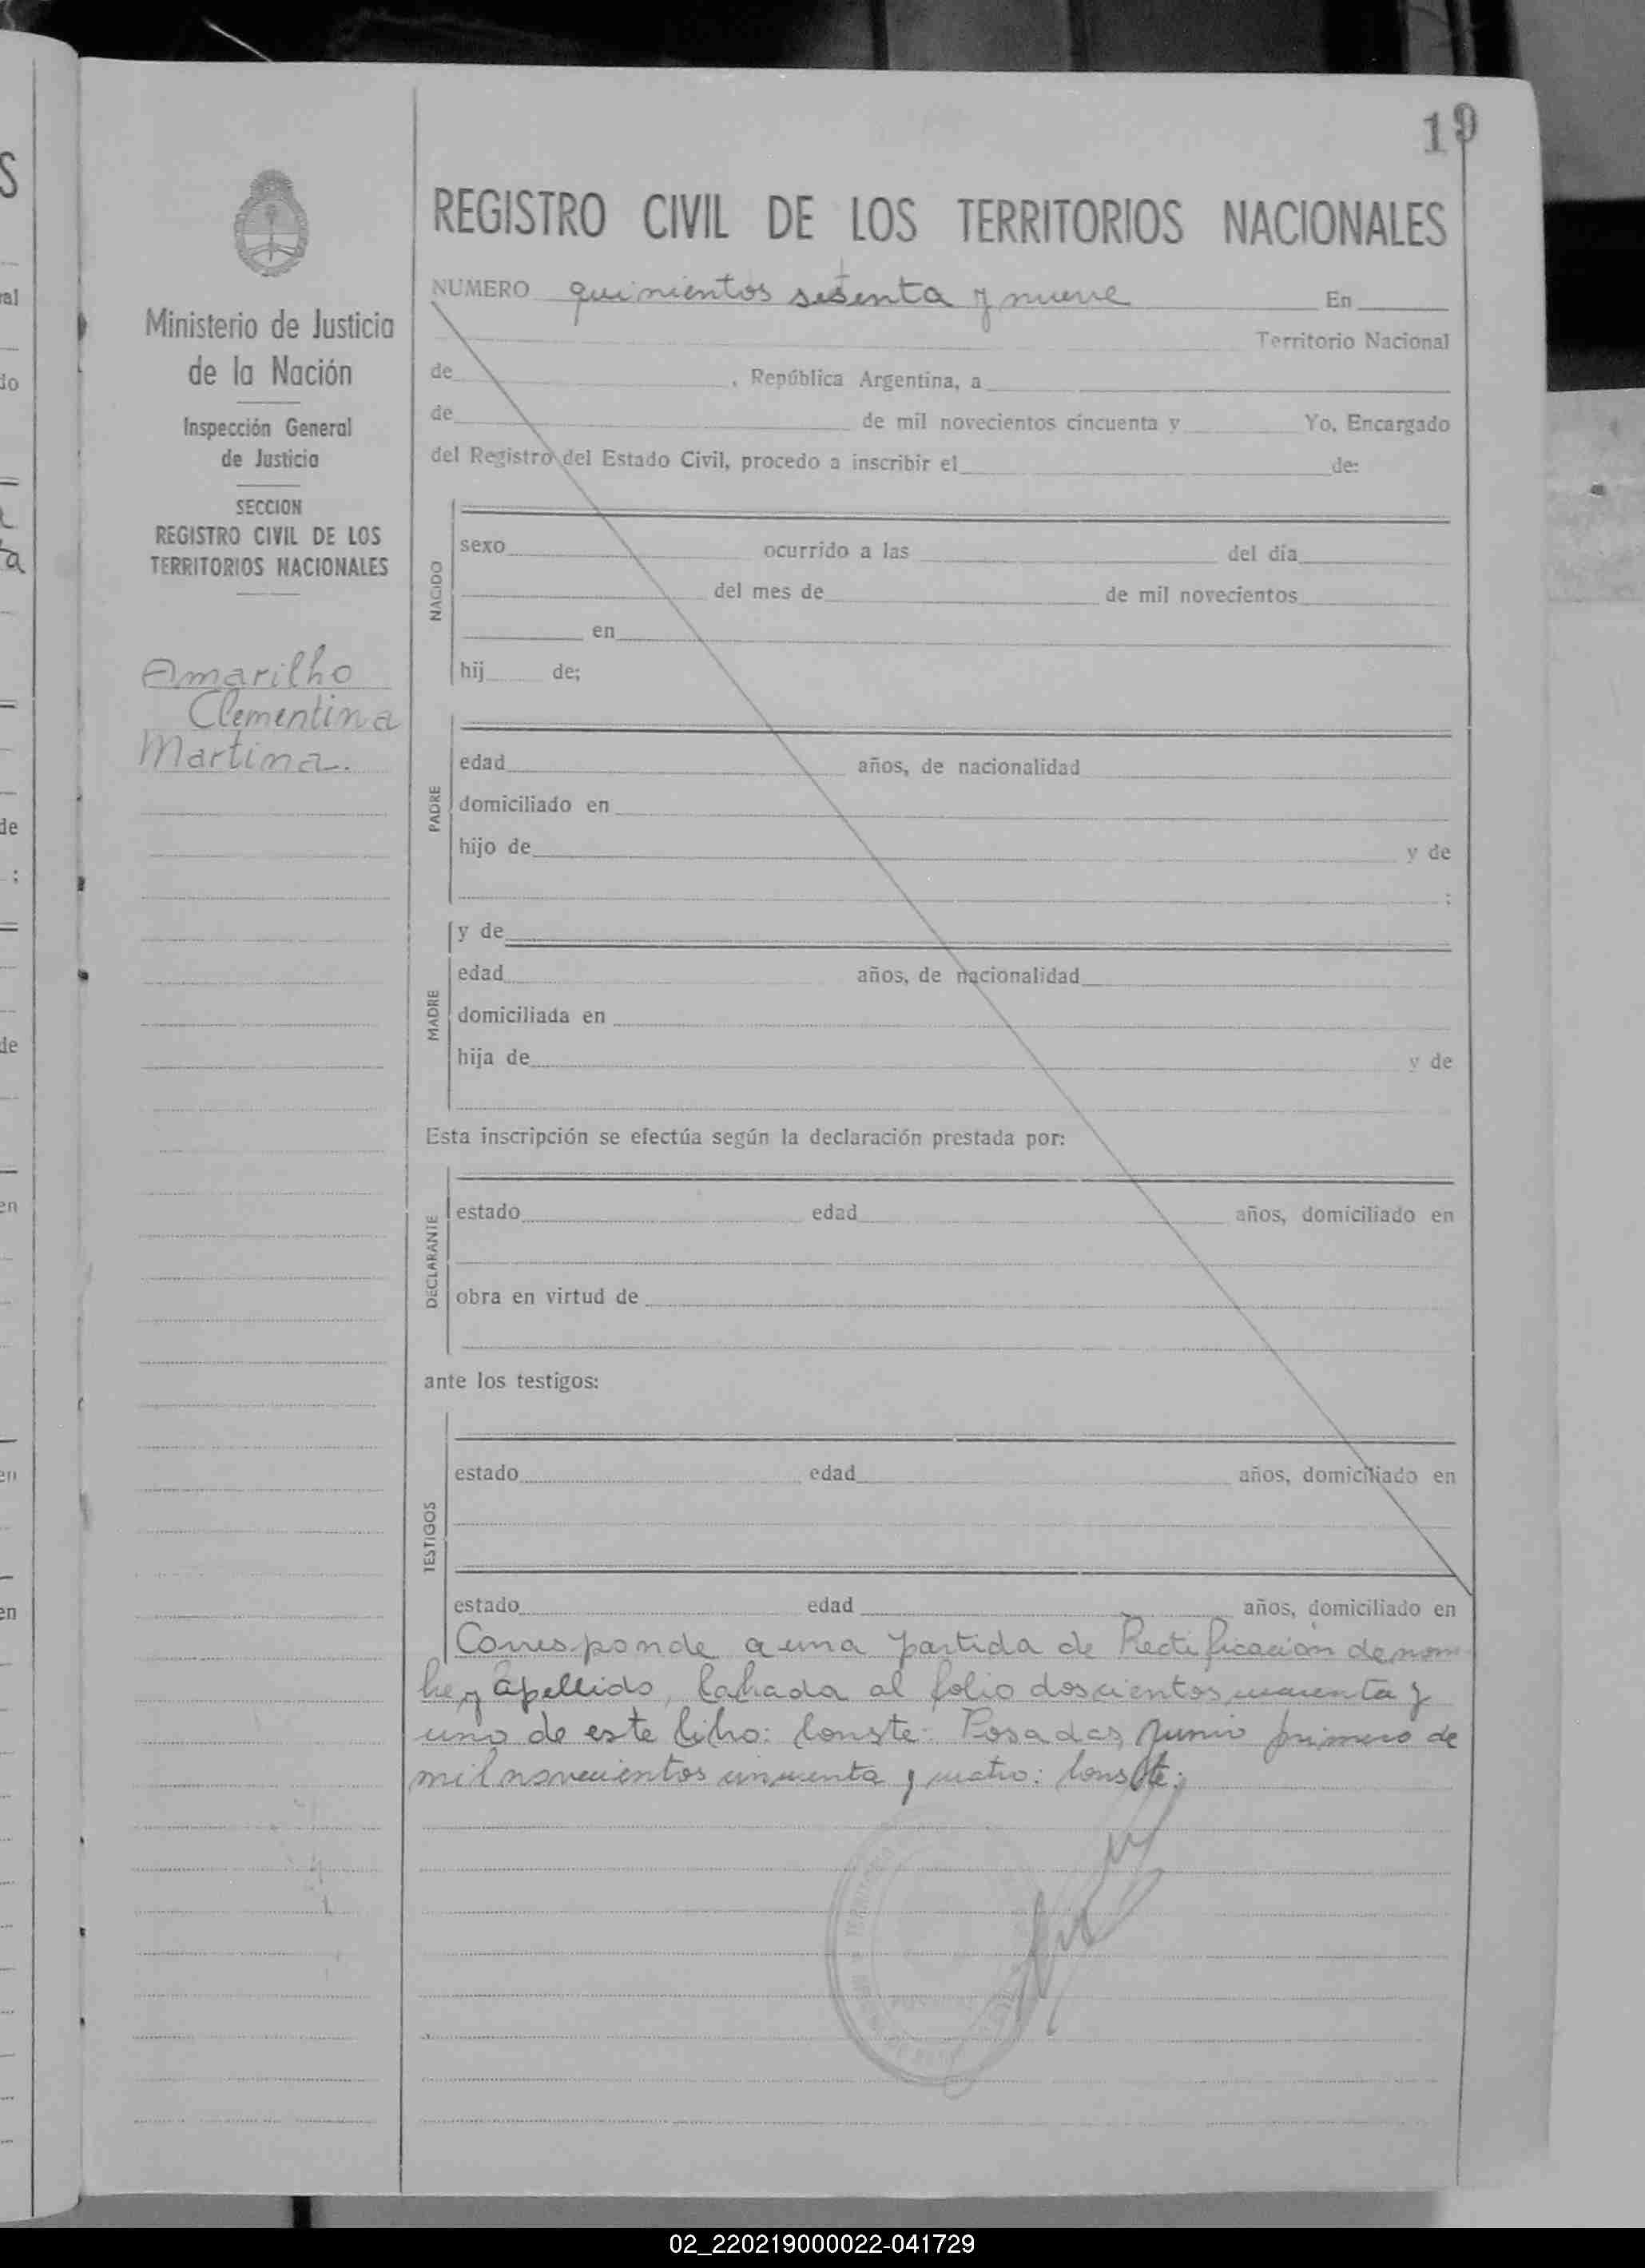 19
REGISTRO CIVIL DE LOS TERRITORIOS NACIONALES
NUMERO quinientos sesenta y nueve En
Territorio Nacional
de , República Argentina, a
de de mil novecientos cincuenta y Yo, Encargado
del Registro del Estado Civil, procedo a inscribir el de:
Ministerio de Justicia
de la Nación
Inspección General
de Justicia
SECCION
REGISTRO CIVIL DE LOS
TERRITORIOS NACIONALES
Amarilho
Clementina
Martina.
NACIDO
sexo ocurrido a las del día
del mes de de mil novecientos
en
hij de;
PADRE
edad años, de nacionalidad
domiciliado en
hijo de y de
;
y de
MADRE
edad años, de nacionalidad
domiciliada en
hija de y de
Esta inscripción se efectúa según la declaración prestada por:
DECLARANTE
estado edad años, domiciliado en
obra en virtud de
ante los testigos:
TESTIGOS
estado edad años, domiciliado en
estado edad años, domiciliado en
Corresponde a una partida de Rectificación de nom
bre y apellido, labrada al folio doscientos cuarenta y
uno de este libro: Conste: Posadas, Junio primero de
mil novecientos cincuenta y cuatro: Conste:
02_220219000022-041729